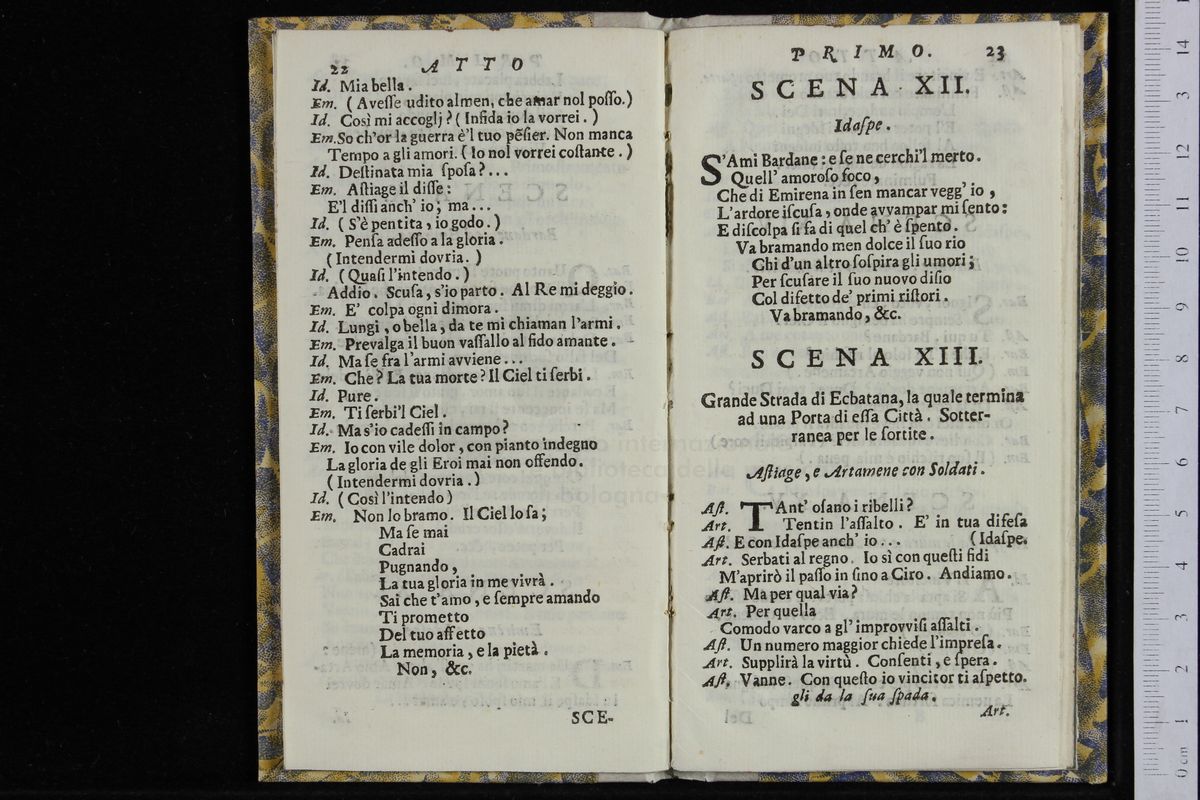 22 ATTO
Id. Mia bella.
Em. (Aveſſe udito almen, che amar nol poſſo.)
Id. Così mi accoglj? (Infida io la vorrei.)
Em. So ch'or la guerra è'l tuo pẽſier. Non manca
Tempo a gli amori. (Io nol vorrei coſtante.)
Id. Deſtinata mia ſpoſa?...
Em. Aſtiage il diſſe:
E'l diſſi anch' io; ma...
Id. (S'è pentita, io godo.)
Em. Penſa adeſſo a la gloria.
(Intendermi dovria.)
Id. (Quaſi l'intendo.)
Addio. Scuſa, s'io parto. Al Re mi deggio.
Em. E' colpa ogni dimora.
Id. Lungi, o bella, da te mi chiaman l'armi.
Em. Prevalga il buon vaſſallo al fido amante.
Id. Ma ſe fra l'armi avviene...
Em. Che? La tua morte? Il Ciel ti ſerbi.
Id. Pure.
Em. Ti ſerbi'l Ciel.
Id. Ma s'io cadeſſi in campo?
Em. Io con vile dolor, con pianto indegno
La gloria de gli Eroi mai non offendo.
(Intendermi dovria.)
Id. (Così l'intendo)
Em. Non lo bramo. Il Ciel lo ſa;
Ma ſe mai
Cadrai
Pugnando,
La tua gloria in me vivrà.
Sai che t'amo, e ſempre amando
Ti prometto
Del tuo affetto
La memoria, e la pietà.
Non, &c.
SCE-
PRIMO. 23
SCENA XII.
Idaſpe.
S'Ami Bardane: e ſe ne cerchi'l merto.
Quell' amoroſo foco,
Che di Emirena in ſen mancar vegg' io,
L'ardore iſcuſa, onde avvampar mi ſento:
E diſcolpa ſi fa di quel ch' è ſpento.
Va bramando men dolce il ſuo rio
Chi d'un altro ſoſpira gli umori;
Per ſcuſare il ſuo nuovo diſio
Col difetto de' primi riſtori.
Va bramando, &c.
SCENA XIII.
Grande Strada di Ecbatana, la quale termina
ad una Porta di eſſa Città. Sotter-
ranea per le ſortite.
Aſtiage, e Artamene con Soldati.
Aſt. TAnt' oſano i ribelli?
Art. Tentin l'aſſalto. E' in tua difeſa
Aſt. E con Idaſpe anch' io... (Idaſpe.
Art. Serbati al regno. Io sì con queſti fidi
M'aprirò il paſſo in ſino a Ciro. Andiamo.
Aſt. Ma per qual via?
Art. Per quella
Comodo varco a gl' improvviſi aſſalti.
Aſt. Un numero maggior chiede l'impreſa.
Art. Supplirà la virtù. Conſenti, e ſpera.
Aſt. Vanne. Con queſto io vincitor ti aſpetto.
gli da la ſua ſpada.
Art.